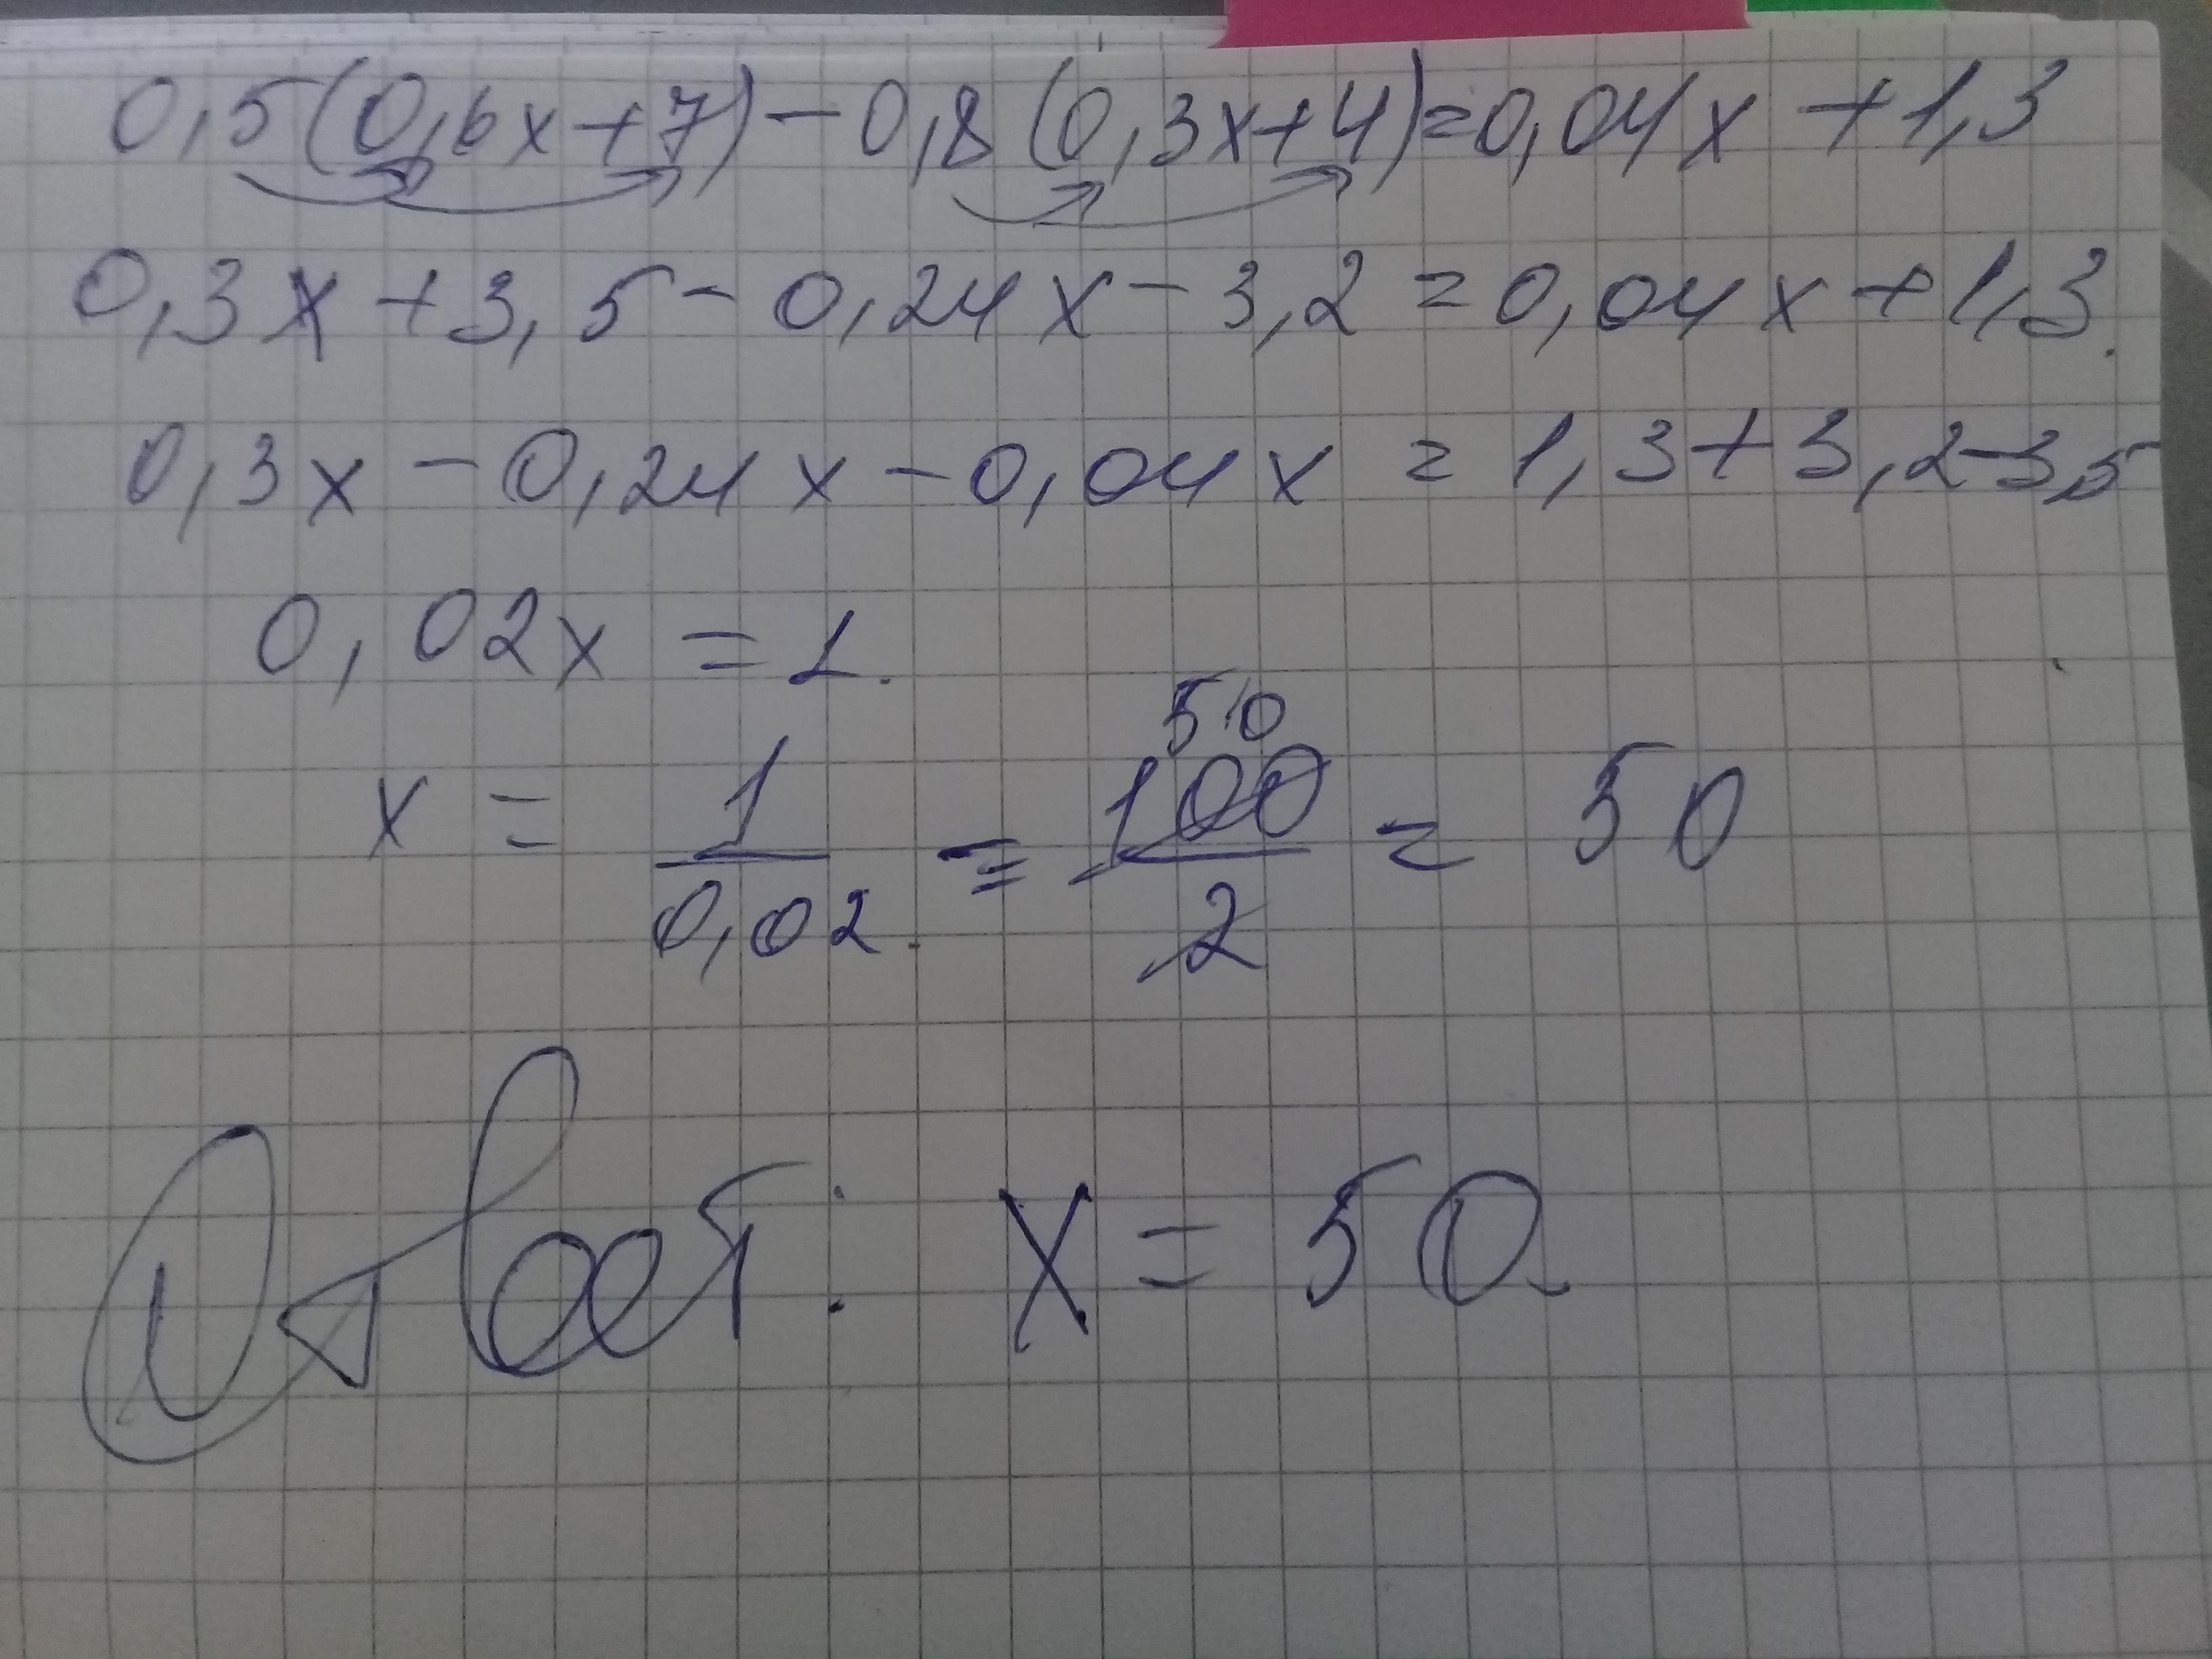 0,5(0,6x+7)-0,8(0,3x+4)=0,04x+1,3
0,3x+3,5-0,24x-3,2=0,04x+1,3.
0,3x-0,24x-0,04x=1,3+3,2-3,5
0,02x=1.
x = 1/0,02 = 100/2 = 50
50
Ответ: x=50.